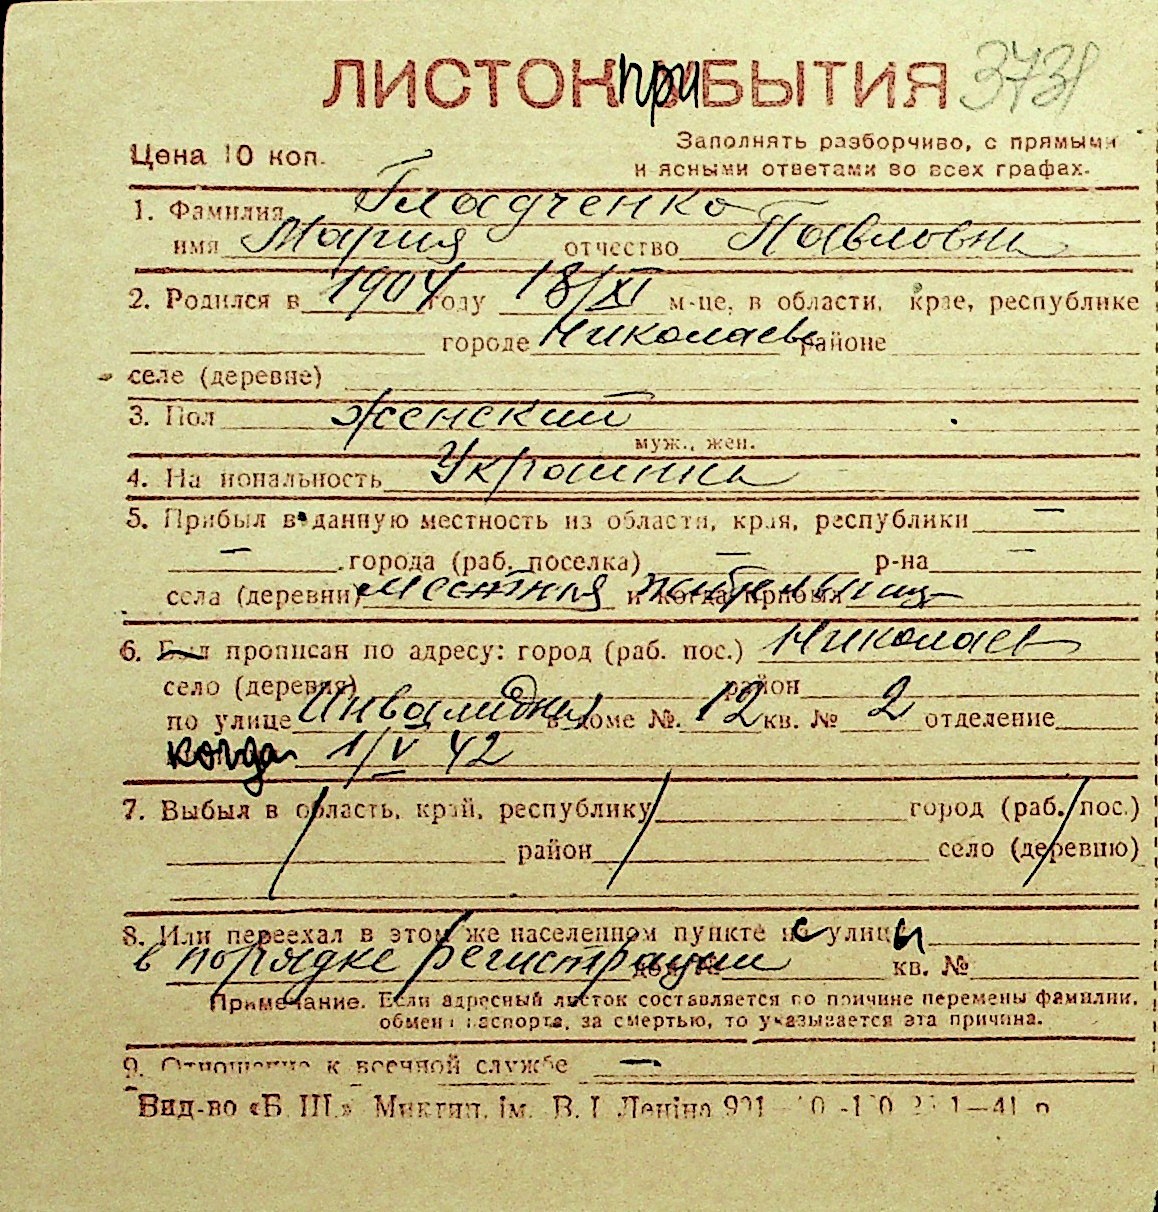 ЛИСТОК ПРИБЫТИЯ 3731
Заполнять разборчиво, с прямыми
Цена 10 коп. и ясными ответами во всех графах.
1. Фамилия Гладченко
имя Мария отчество Павловна
2. Родился в 1904 году 18/XI м-це, в области, крае, республике
городе Николаеве районе
селе (деревне)
3. Пол женский
муж., жен.
4. Национальность Украинка
5. Прибыл в данную местность из области, края, республики —
— города (раб. поселка) — р-на —
села (деревни) местная и когда прибыл жительница
6. Был прописан по адресу: город (раб. пос.) Николаев
село (деревня) район
по улице Инвалидная в доме № 12 кв. № 2 отделение
когда 1/V 42
7. Выбыл в область, край, республику город (раб. пос.)
район село (деревню)
8. Или переехал в этом же населенном пункте с улицы
в порядке регистрации дом № кв. №
Примечание. Если адресный листок составляется по причине перемены фамилии,
обмена паспорта, за смертью, то указывается эта причина.
9. Отношение к военной службе —
Вид-во «Б. Ш.» Миктип. ім. В. І. Леніна